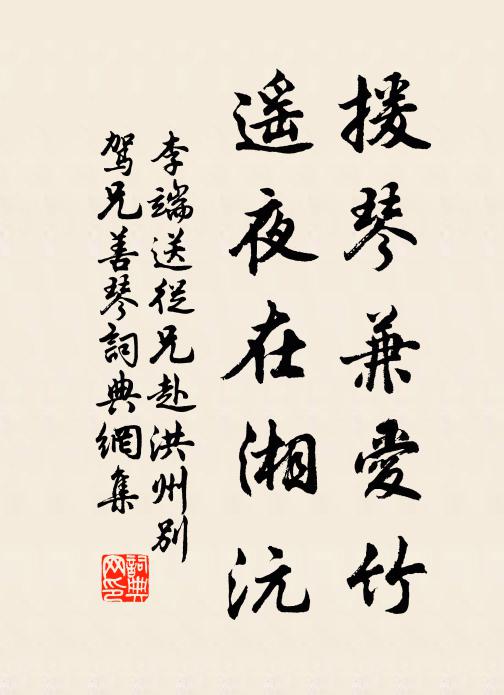 援琴兼愛竹
遥夜在湘沅
李端送從兄赴洪州別
駕兄善琴詞典網集
詞典网印